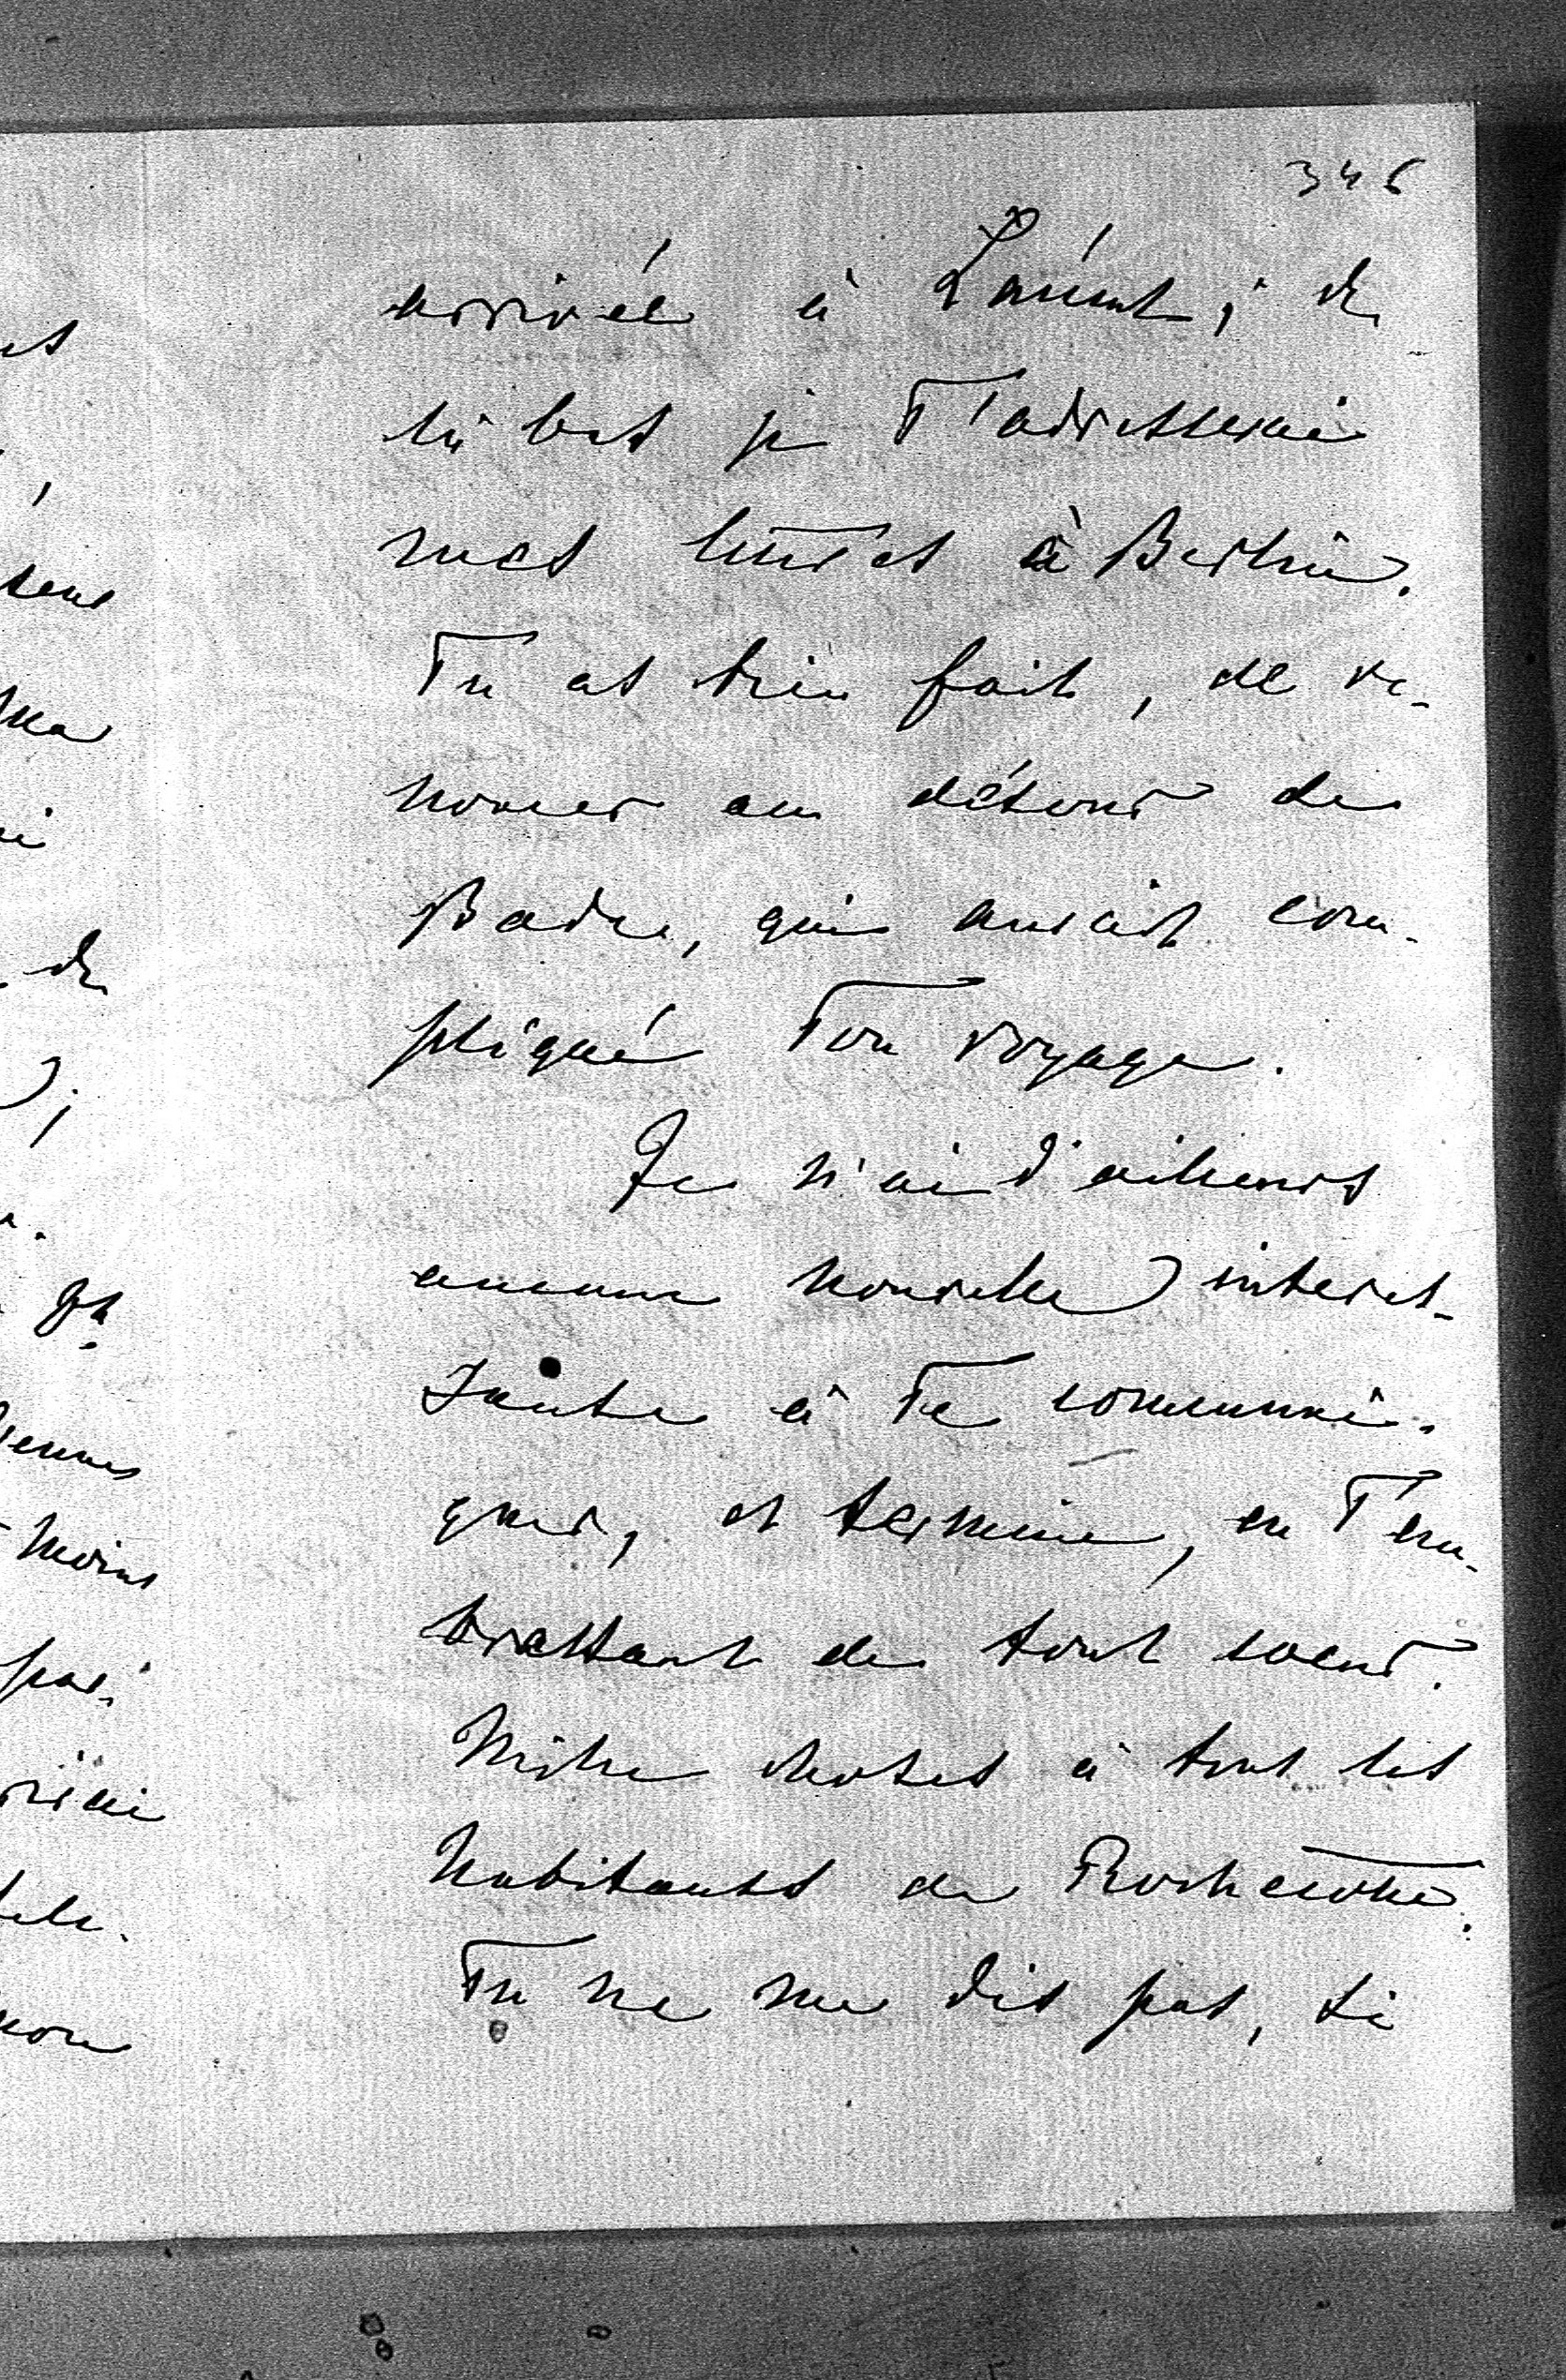 346
arrivée à Lanént ; de
là bas je T'adresserai
mes lettres à Berlin.
Tu as bien fait, de re-
noncer au détour de
Bade, qui aurait com-
pliqué Ton voyage.
Je n'ai d'ailleurs
aucune nouvelle interes-
sante à Te communi-
quer, et termine, en T'em-
brassant de tout coeur.
Mille choses à tous les
habitants de Rochecotte.
Tu ne me dis pas, si